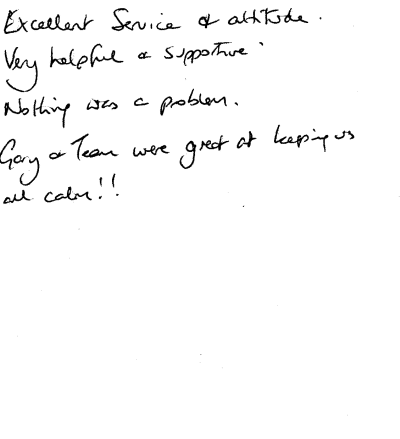 Excellent Service & attitude.
Very helpful & supportive.
Nothing was a problem.
Gary & Team were great at keeping us
all calm!!